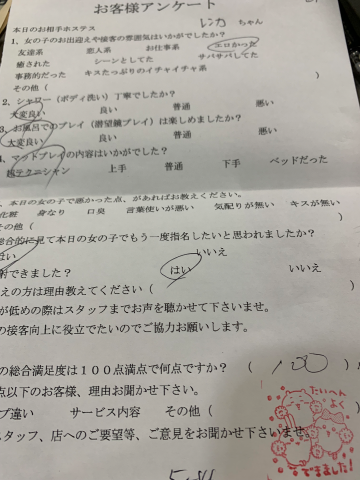 お客様アンケート
本日のお相手ホステス レンカ ちゃん
1、女の子のお出迎えや接客の雰囲気はいかがでしたか?
友達系 恋人系 お仕事系 エロかった
癒された シーンとしてた サバサバしてた
事務的だった キスたっぷりのイチャイチャ系
その他( )
2、シャワー(ボディ洗い)丁寧でしたか?
大変良い 良い 普通 悪い
3、お風呂でのプレイ(潜望鏡プレイ)は楽しめましたか?
大変良い 良い 普通 悪い
マットプレイの内容はいかがでしたか?
超テクニシャン 上手 普通 下手 ベッドだった
、本日の女の子で悪かった点、があればお教えください。
化粧 身なり 口臭 言葉使いが悪い 気配りが無い キスが無い
その他(
総合的に見て本日の女の子でもう一度指名したいと思われましたか?
はい いいえ
できました? はい いいえ
えの方は理由教えてください(
が低めの際はスタッフまでお声を聴かせて下さいませ。
の接客向上に役立でたいのでご協力お願いします。
の総合満足度は100点満点で何点ですか? ( 100 )
点以下のお客様、理由お聞かせ下さい。
プ違い サービス内容 その他(
スタッフ、店へのご要望等、ご意見をお聞かせ下さいませ。
たいへん
よく
できました!